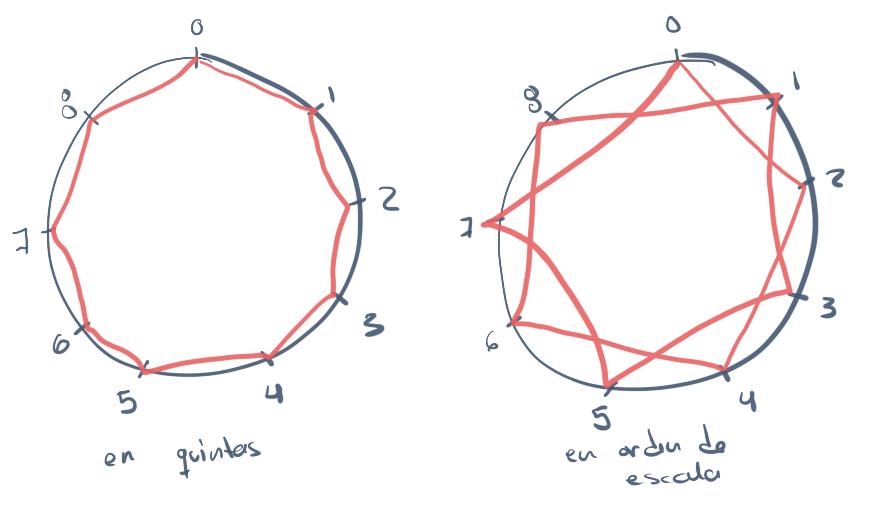 0
1
2
3
4
5
6
7
8
en quintas
0
1
2
3
4
5
6
7
8
en orden de
escala